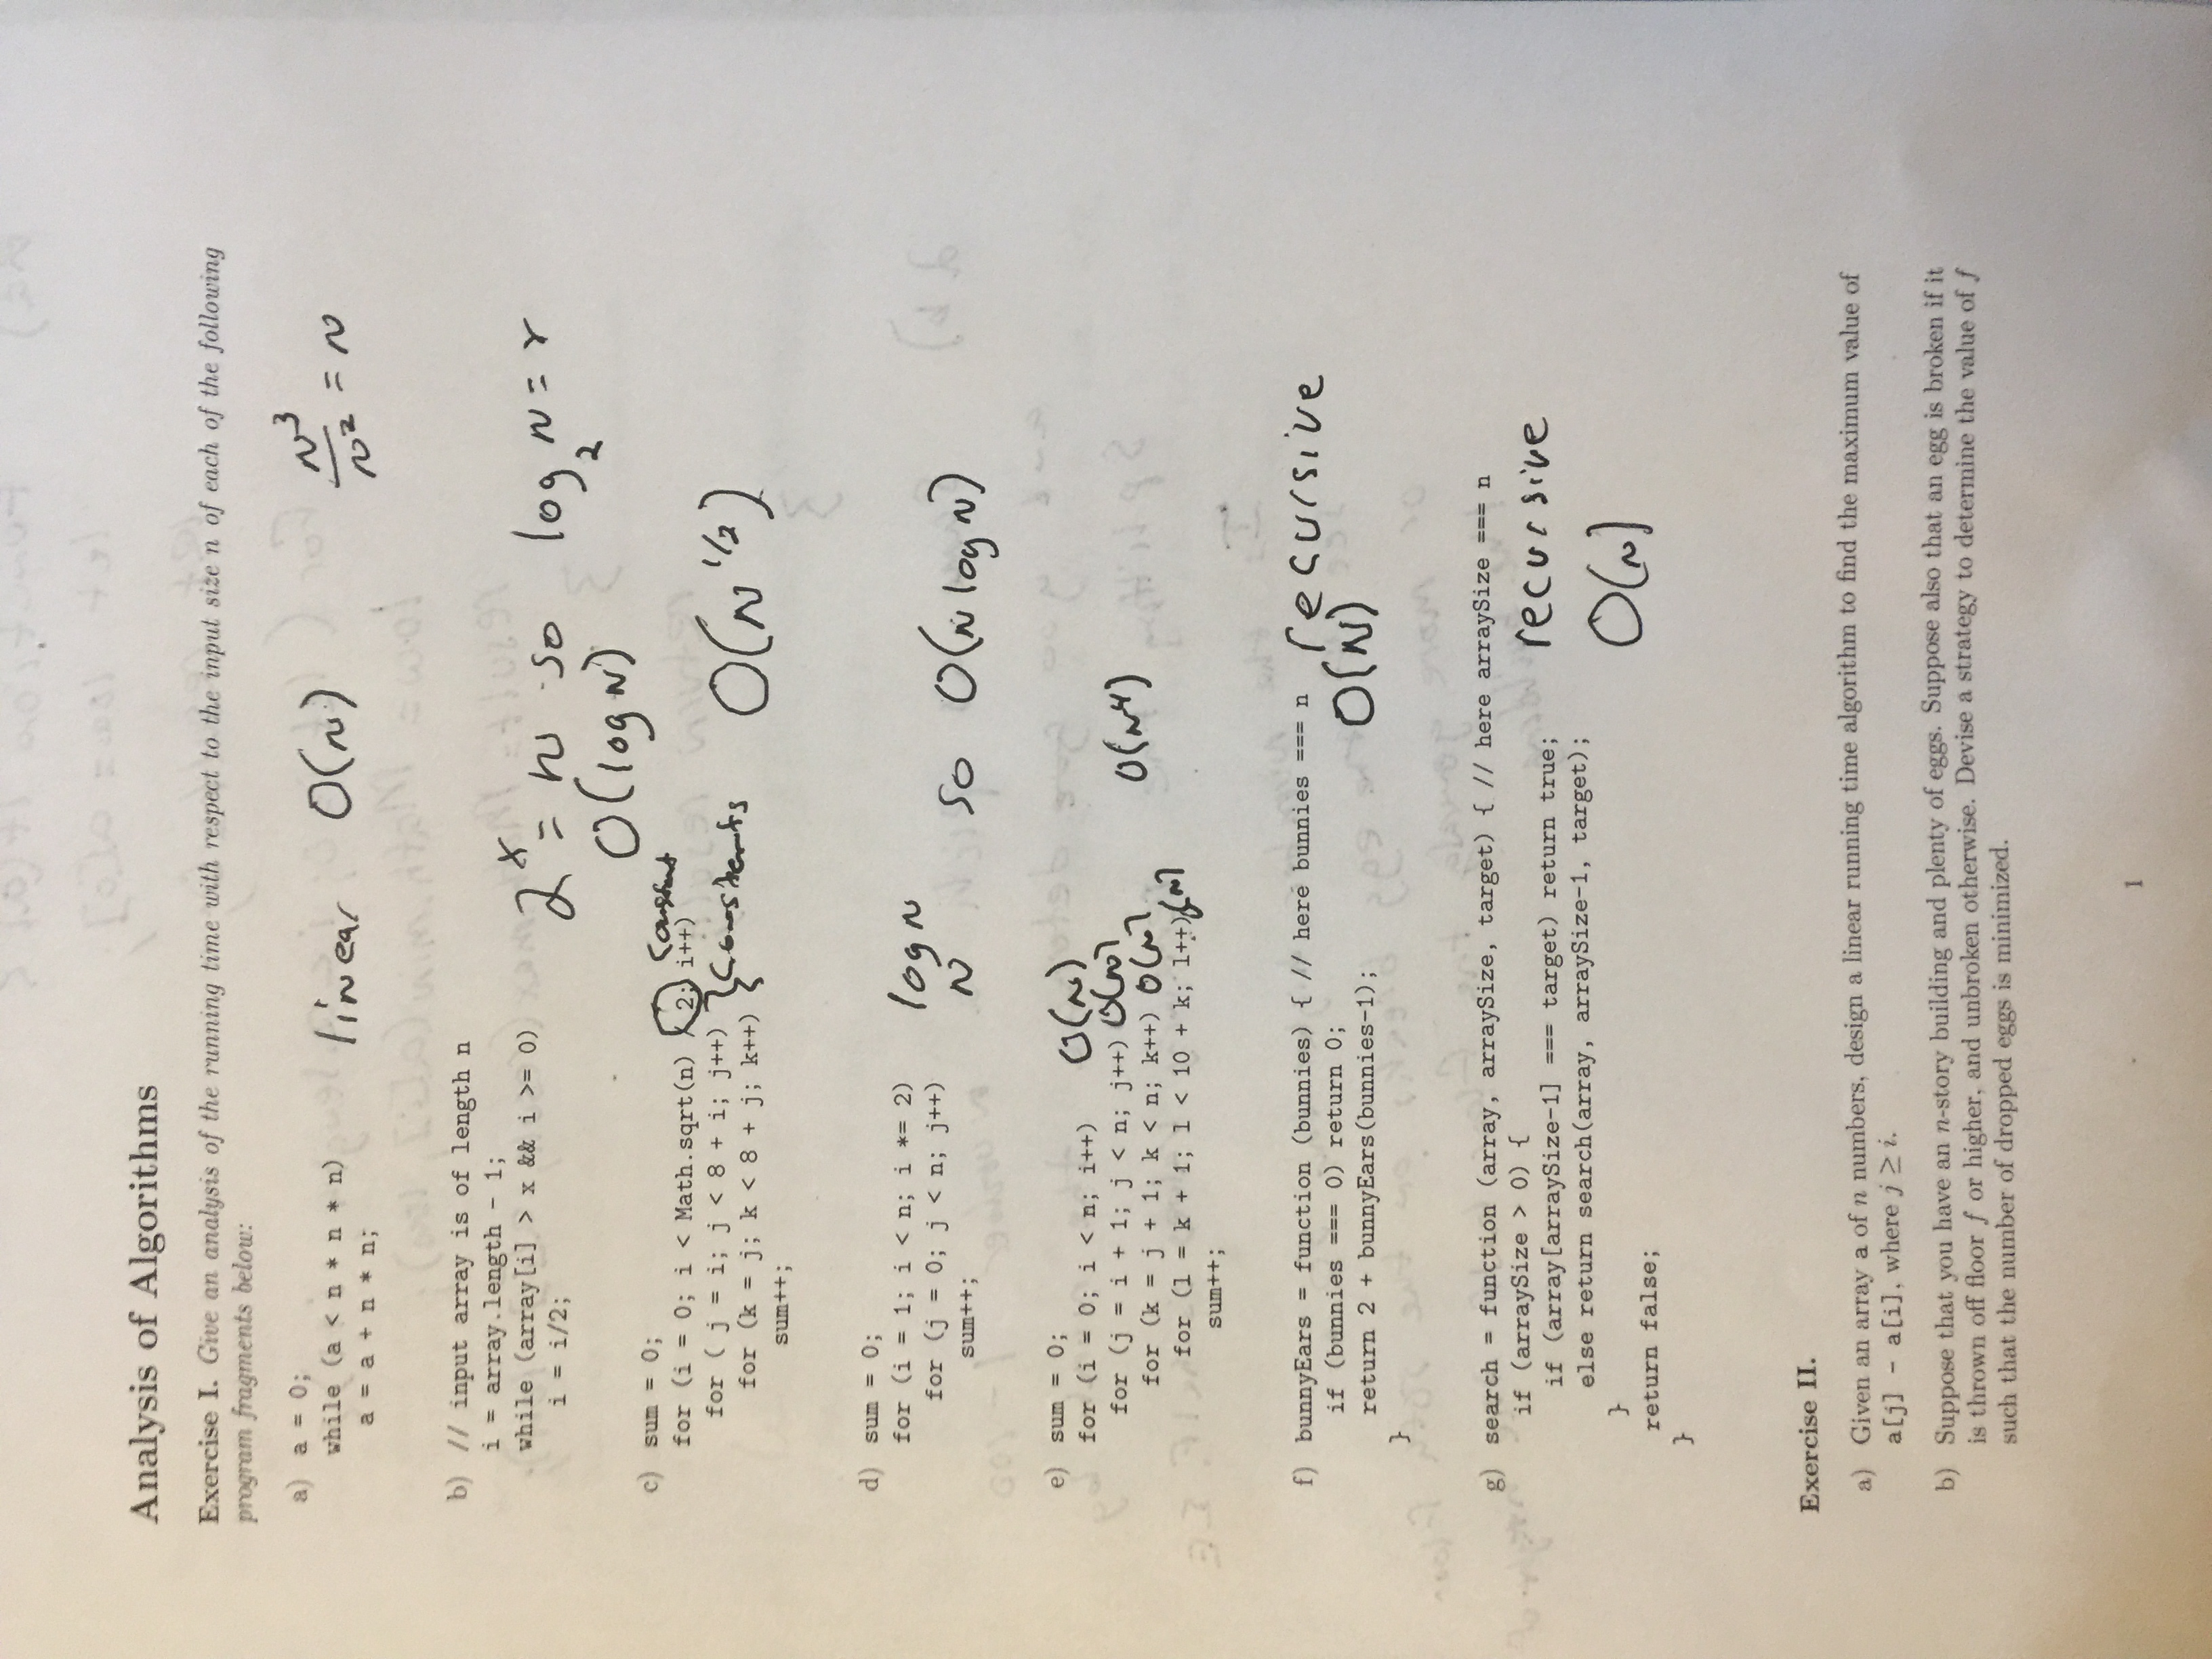 Analysis of Algorithms
Exercise I. Give an analysis of the running time with respect to the input size n of each of the following
program fragments below:
a) a = 0;
while (a < n * n * n)
a = a + n * n;
linear O(N) N³/N² = N
b) // input array is of length n
i = array.length - 1;
while (array[i] > x && i >= 0)
i = i/2;
2ˣ = N so log₂ N = x
O(log N)
c) sum = 0;
for (i = 0; i < Math.sqrt(n) / 2; i++) constant
for ( j = i; j < 8 + i; j++) } constants
for (k = j; k < 8 + j; k++)
sum++;
O(N^1/2)
d) sum = 0;
for (i = 1; i < n; i *= 2) log N
for (j = 0; j < n; j++) N
sum++;
so O(N log N)
e) sum = 0;
for (i = 0; i < n; i++) O(N)
for (j = i + 1; j < n; j++) O(N)
for (k = j + 1; k < n; k++) O(N)
for (l = k + 1; l < 10 + k; l++) (N)
sum++;
O(N⁴)
f) bunnyEars = function (bunnies) { // here bunnies === n recursive
if (bunnies === 0) return 0;
return 2 + bunnyEars(bunnies-1); O(N)
}
g) search = function (array, arraySize, target) { // here arraySize === n
if (arraySize > 0) {
if (array[arraySize-1] === target) return true; recursive
else return search(array, arraySize-1, target);
} O(N)
return false;
}
Exercise II.
a) Given an array a of n numbers, design a linear running time algorithm to find the maximum value of
a[j] - a[i], where j ≥ i.
b) Suppose that you have an n-story building and plenty of eggs. Suppose also that an egg is broken if it
is thrown off floor f or higher, and unbroken otherwise. Devise a strategy to determine the value of f
such that the number of dropped eggs is minimized.
1